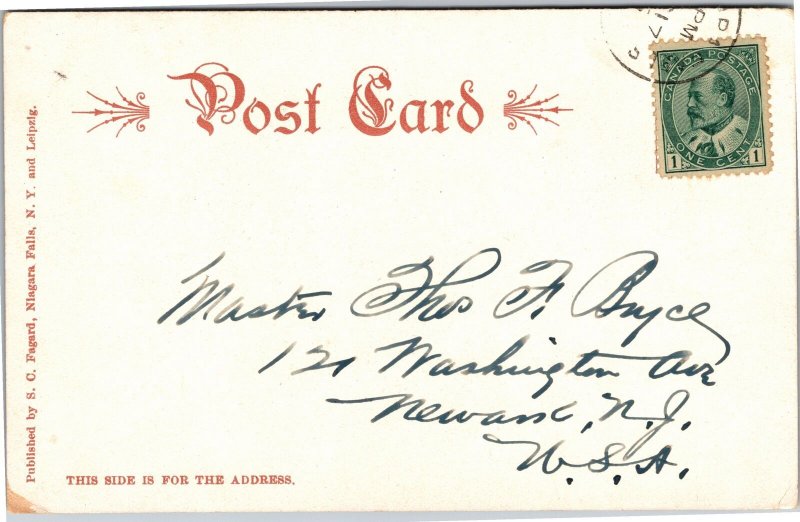 Post Card
CANADA POSTAGE
1 ONE CENT 1
PM
17
Master Thos F. Bryce
121 Washington Ave
Newark, N.J.
U.S.A.
THIS SIDE IS FOR THE ADDRESS.
Published by S. C. Fagard, Niagara Falls, N. Y. and Leipzig.